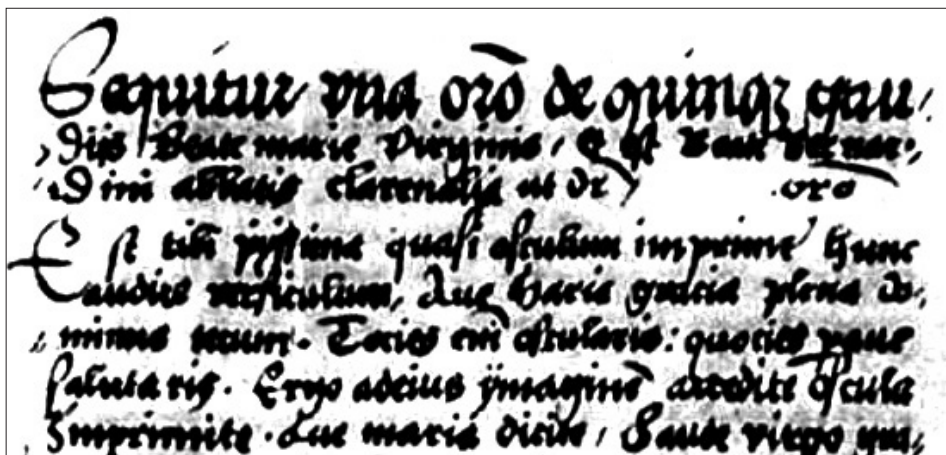 Sequitur vna orõ de quinqꝫ gau/
diis Beate marie Virginis / Est Beate Bernar/
di mi abbatis clareualis ut dr oro
Est tibi pyssima quasi osculum imprime hunc
audiens versiculum, Aue Maria gracia plena do/
minus tecum. Tocies em oscularis: quocies
salutaris. Ergo adeius ymagine accedite oscula
Imprimite. Aue maria dicite / Gaude virgo